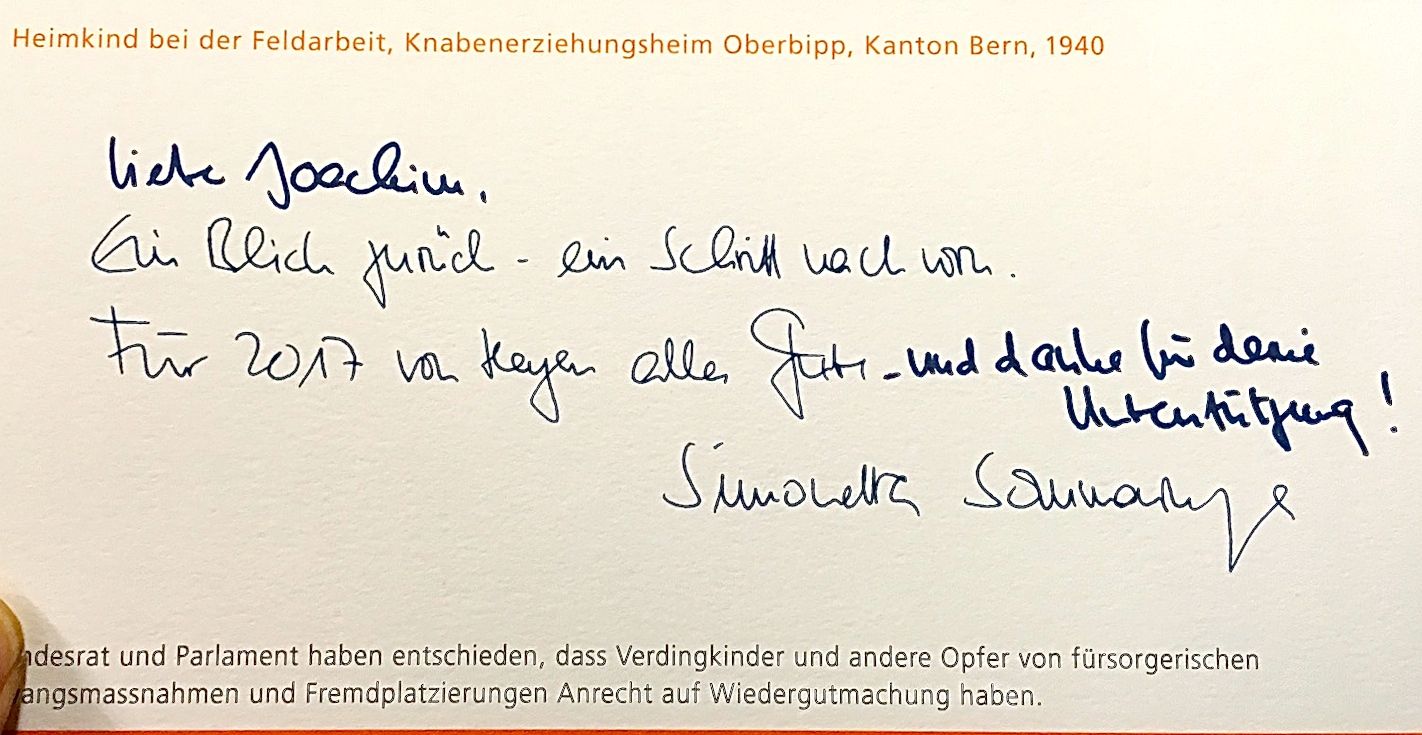 Heimkind bei der Feldarbeit, Knabenerziehungsheim Oberbipp, Kanton Bern, 1940
Lieber Joachim,
Ein Blick zurück - ein Schritt nach vorn.
Für 2017 von Herzen alles Gute - und danke für deine
Unterstützung!
Simonetta Sommaruga
ndesrat und Parlament haben entschieden, dass Verdingkinder und andere Opfer von fürsorgerischen
angsmassnahmen und Fremdplatzierungen Anrecht auf Wiedergutmachung haben.